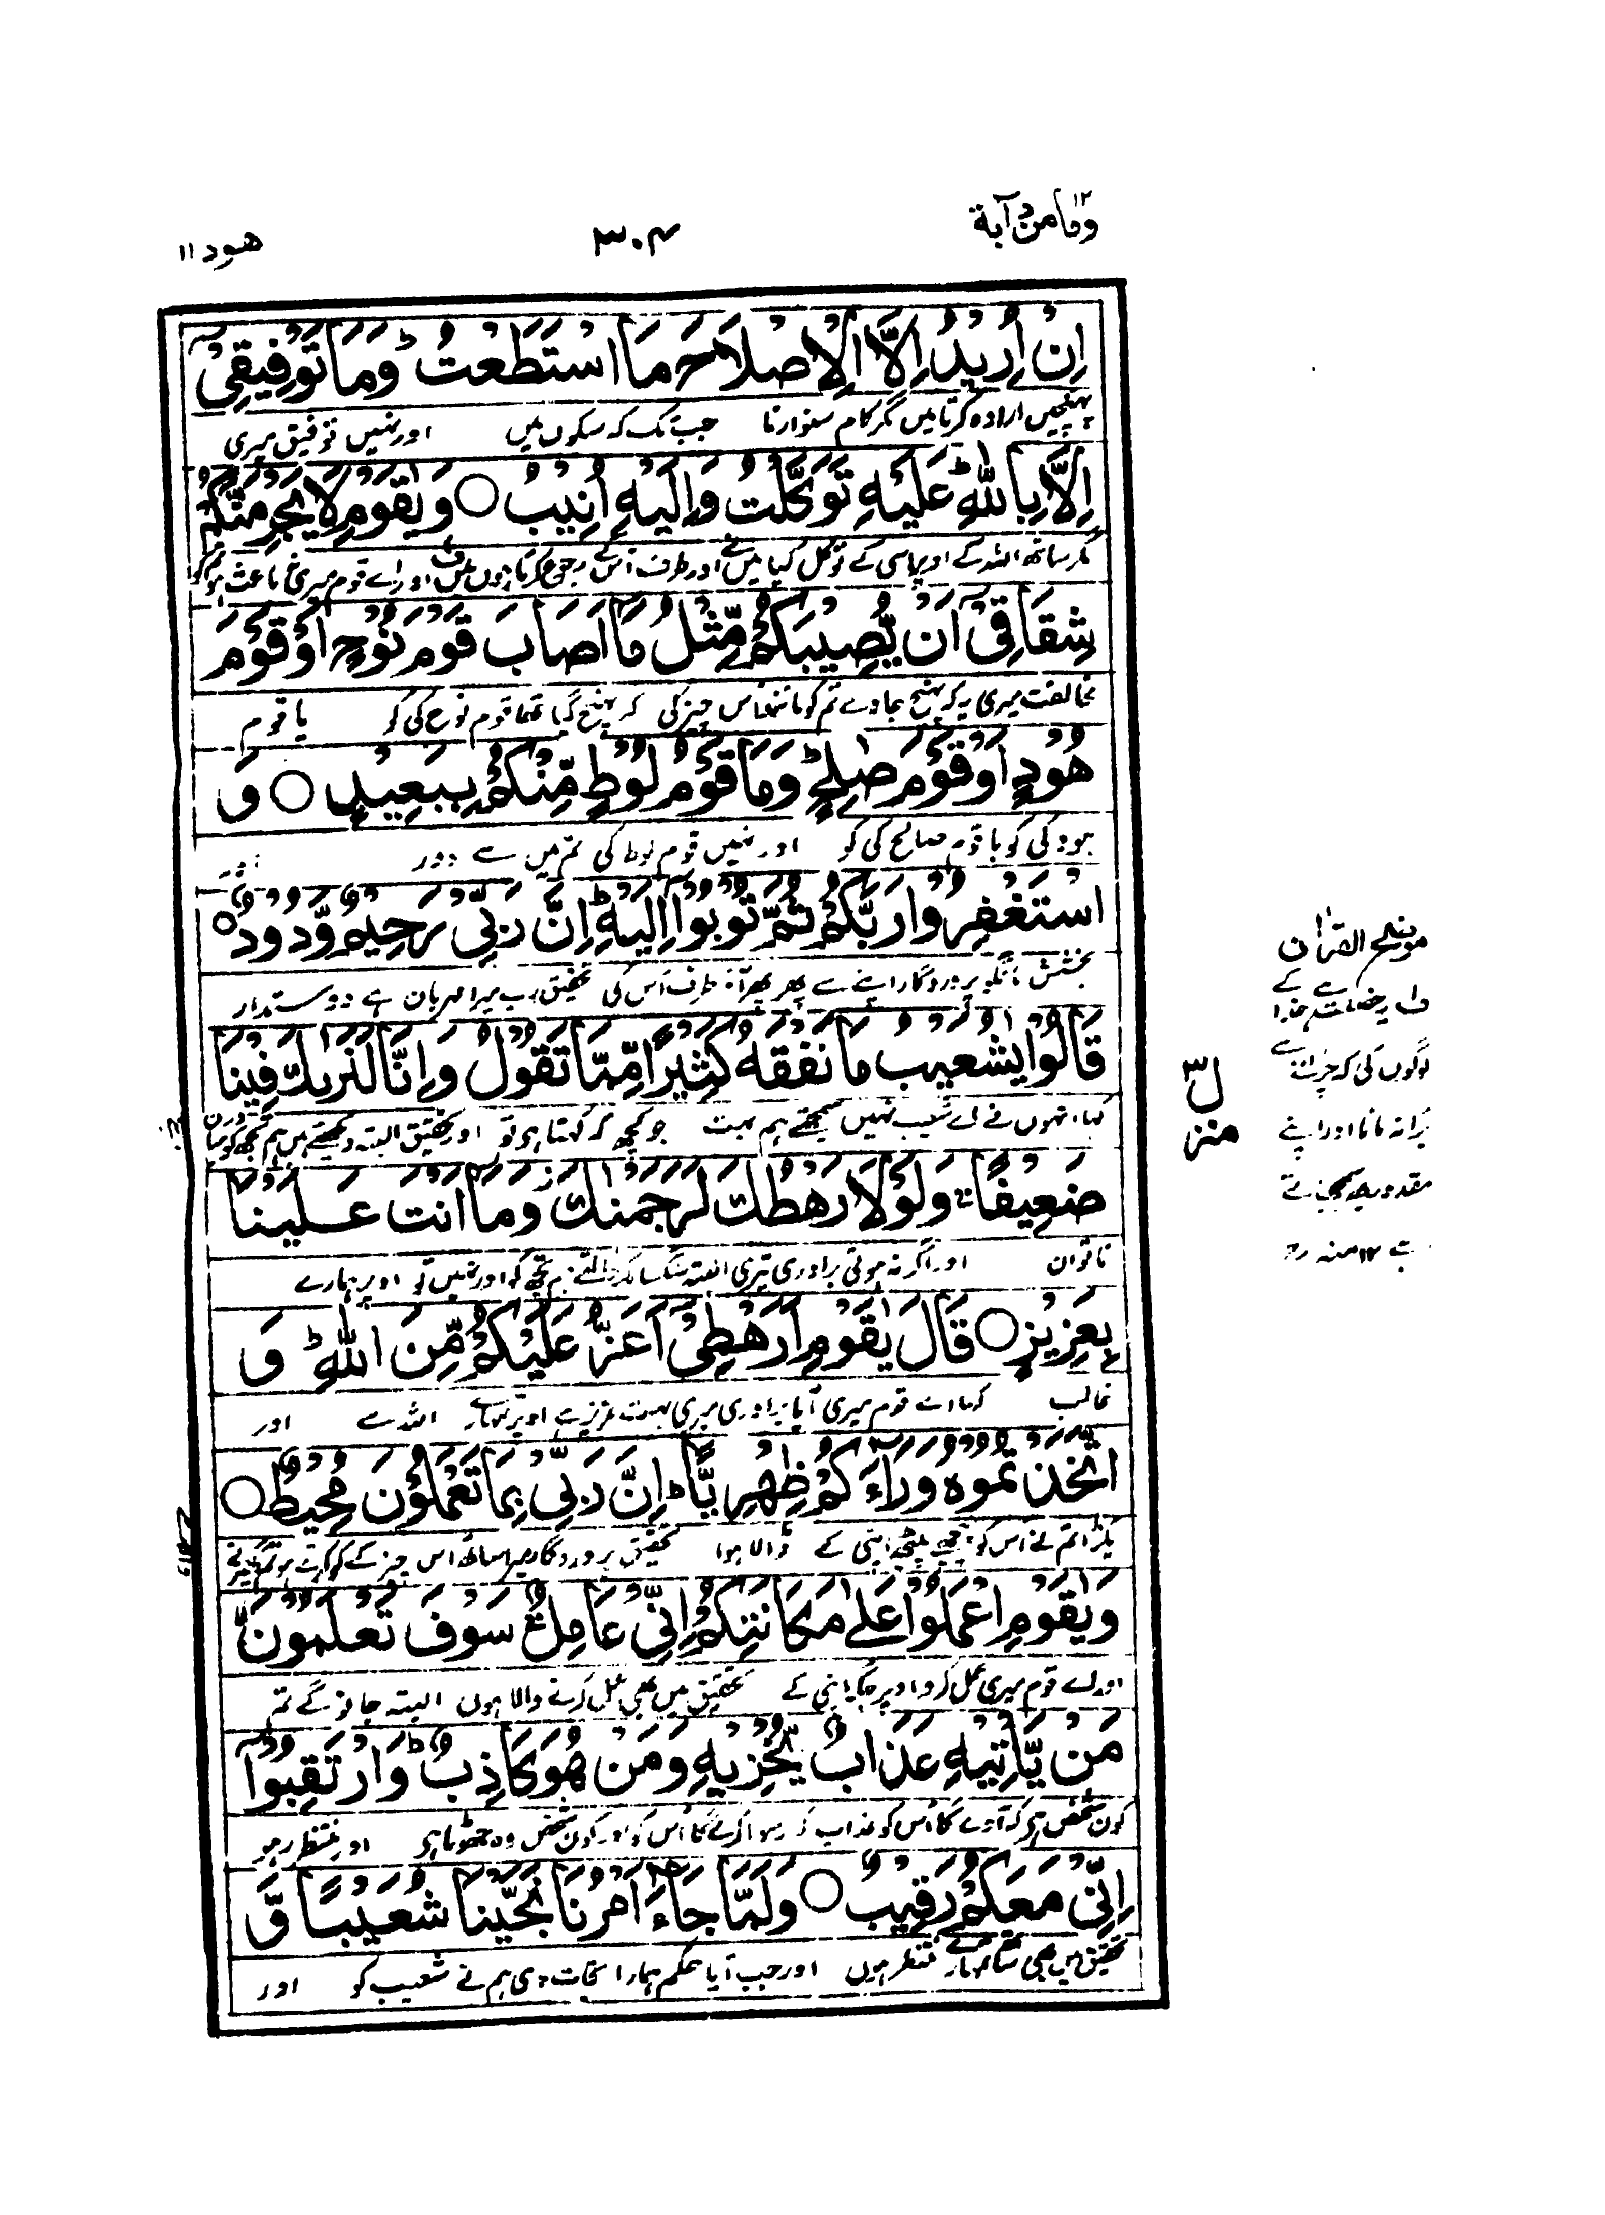 وما من دآبة ١٢
٣٠٤
هود ١١
اِنْ اُرِيْدُ اِلَّا الْاِصْلَاحَ مَا اسْتَطَعْتُ ؕ وَمَا تَوْفِيْقِيْٓ
ارادہ کرتا میں مگر کام سنوارنا جب تک کہ سکوں میں اور نہیں توفیق میری
اِلَّا بِاللّٰهِ ؕ عَلَيْهِ تَوَكَّلْتُ وَاِلَيْهِ اُنِيْبُ ○ وَيٰقَوْمِ لَا يَجْرِمَنَّكُمْ
مگر ساتھ اللہ کے اوپر اسی کے توکل کیا میں نے اور طرف اس کے رجوع کرتا ہوں میں اور اے قوم میری نہ باعث ہو تم کو
شِقَاقِيْٓ اَنْ يُّصِيْبَكُمْ مِّثْلُ مَآ اَصَابَ قَوْمَ نُوْحٍ اَوْ قَوْمَ
مخالفت میری یہ کہ پہنچ جاوے تم کو مانند اس چیز کی کہ پہنچ گیا تھا قوم نوح کی کو یا قوم
هُوْدٍ اَوْ قَوْمَ صٰلِحٍ ؕ وَمَا قَوْمُ لُوْطٍ مِّنْكُمْ بِبَعِيْدٍ ○ وَ
ہود کی کو یا قوم صالح کی کو اور نہیں قوم لوط کی تم میں سے دور اور
اسْتَغْفِرُوْا رَبَّكُمْ ثُمَّ تُوْبُوْٓا اِلَيْهِ ؕ اِنَّ رَبِّيْ رَحِيْمٌ وَّدُوْدٌ ○
بخشش مانگو پروردگار اپنے سے پھر پھر آؤ طرف اس کی تحقیق رب میرا مہربان ہے دوستدار
قَالُوْا يٰشُعَيْبُ مَا نَفْقَهُ كَثِيْرًا مِّمَّا تَقُوْلُ وَاِنَّا لَنَرٰىكَ فِيْنَا
کہا انہوں نے اے شعیب نہیں سمجھتے ہم بہت جو کچھ کہ کہتا ہے تو اور تحقیق البتہ دیکھتے ہیں ہم تجھ کو
ضَعِيْفًا ۚ وَلَوْلَا رَهْطُكَ لَرَجَمْنٰكَ ؗ وَمَآ اَنْتَ عَلَيْنَا
ناتوان اور اگر نہ ہوتی برادری تیری البتہ سنگسار کر ڈالتے ہم تجھ کو اور نہیں تو اوپر ہمارے
بِعَزِيْزٍ ○ قَالَ يٰقَوْمِ اَرَهْطِيْٓ اَعَزُّ عَلَيْكُمْ مِّنَ اللّٰهِ ؕ وَ
غالب کہا اے قوم میری آیا برادری میری بہت عزیز ہے اوپر تمہارے اللہ سے اور
اتَّخَذْتُمُوْهُ وَرَآءَكُمْ ظِهْرِيًّا ؕ اِنَّ رَبِّيْ بِمَا تَعْمَلُوْنَ مُحِيْطٌ ○
پکڑا تم نے اس کو پیچھے پیٹھ اپنی کے ڈالا ہوا تحقیق پروردگار میرا ساتھ اس چیز کے کہ کرتے ہو تم
وَيٰقَوْمِ اعْمَلُوْا عَلٰى مَكَانَتِكُمْ اِنِّيْ عَامِلٌ ؕ سَوْفَ تَعْلَمُوْنَ ۙ
اور اے قوم میری عمل کرو اوپر جگہ اپنی کے تحقیق میں بھی عمل کرنے والا ہوں البتہ جانو گے تم
مَنْ يَّاْتِيْهِ عَذَابٌ يُّخْزِيْهِ وَمَنْ هُوَ كَاذِبٌ ؕ وَارْتَقِبُوْٓا
کون شخص ہے کہ آوے گا اس کو عذاب کہ رسوا کرے گا اس کو اور کون شخص وہ جھوٹا ہے اور منتظر رہو
اِنِّيْ مَعَكُمْ رَقِيْبٌ ○ وَلَمَّا جَآءَ اَمْرُنَا نَجَّيْنَا شُعَيْبًا وَّ
تحقیق میں بھی ساتھ تمہارے منتظر ہوں اور جب آیا حکم ہمارا نجات دی ہم نے شعیب کو اور
موضح القرآن
لوگوں کی کہ
منزل ٣